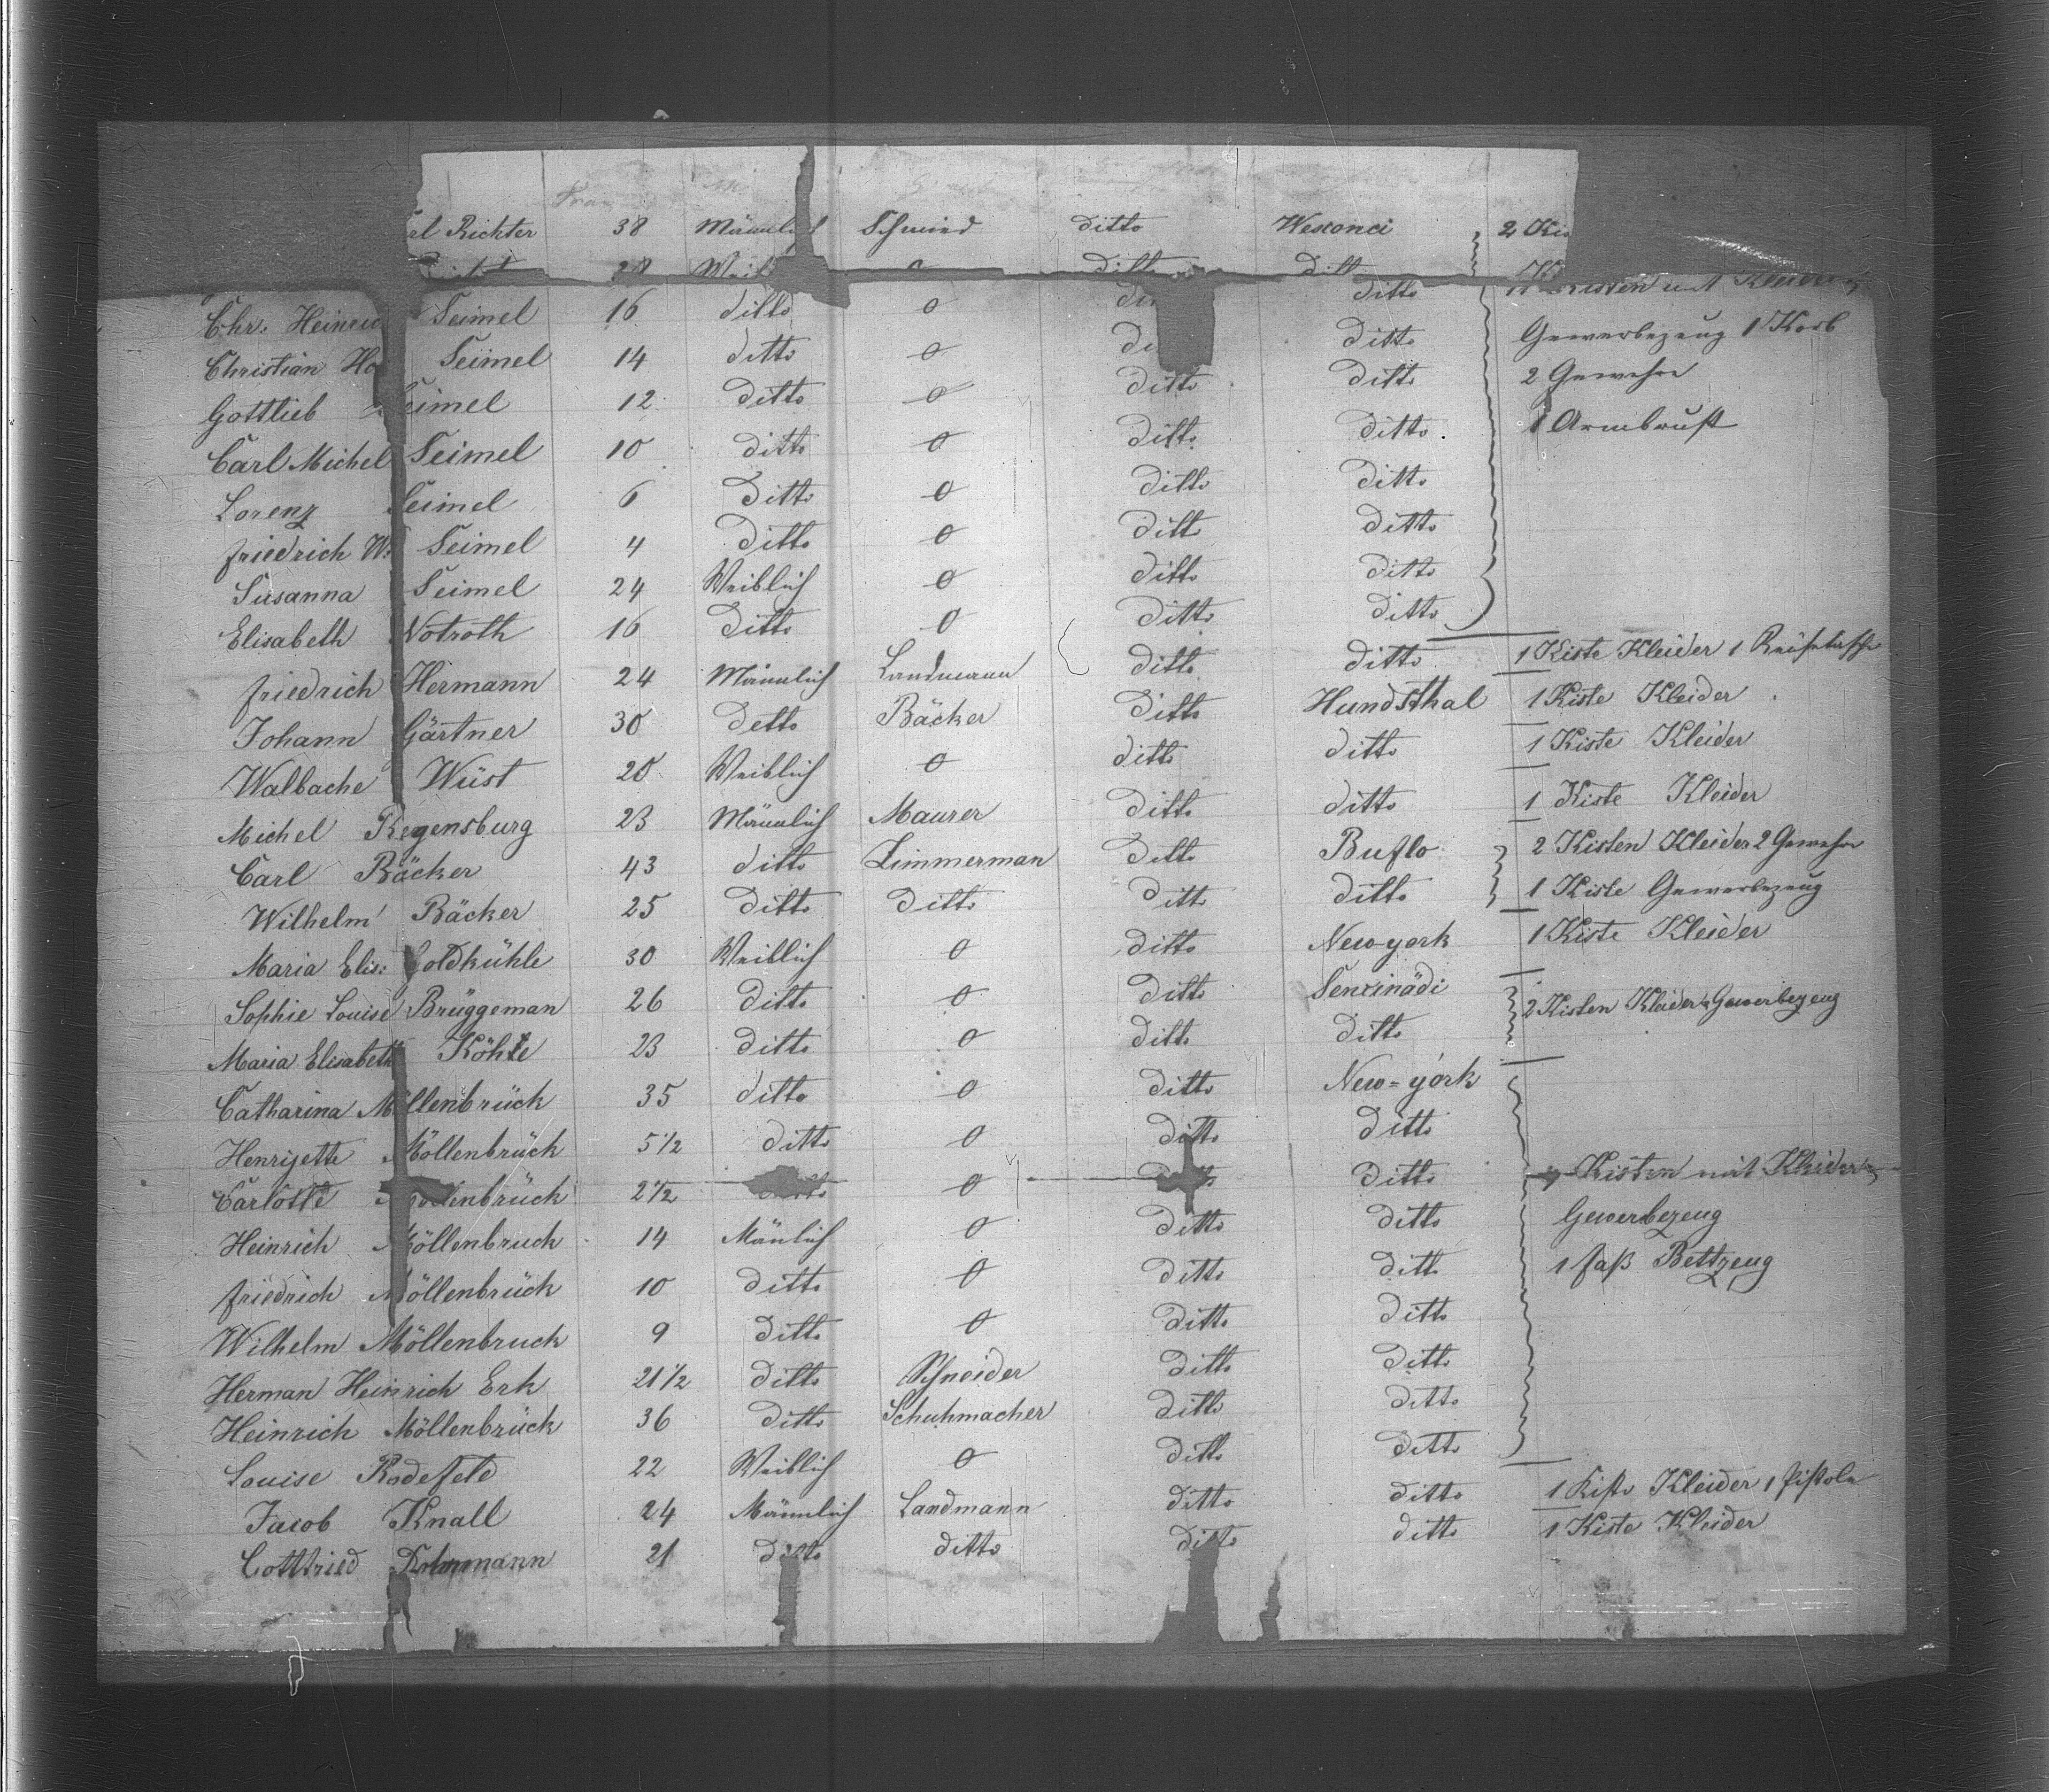 rl Richter 38 Männlich Schmied ditto Wesconci 2 Kis
28 Weib ditto ditto
Chr. Heinric Seimel 16 ditto 0 di ditto Kisten mit Kleider
Christian He Seimel 14 ditto 0 di ditto Gewerbezeug 1 Korb
Gottlieb Seimel 12 ditto 0 ditto ditto 2 Gewehre
Carl Michel Seimel 10 ditto 0 ditto ditto 1 Armbrust
Lorenz Seimel 6 ditto 0 ditto ditto
friedrich W. Seimel 4 ditto 0 ditto ditto
Susanna Seimel 24 Weiblich 0 ditto ditto
Elisabeth Notroth 16 ditto 0 ditto ditto
friedrich Hermann 24 Männlich Landmann ditto ditto 1 Kiste Kleider 1 Reisetasche
Johann Gärtner 30 Detto Bäcker ditto Hundsthal 1 Kiste Kleider
Walbache Wüst 20 Weiblich 0 ditto ditto 1 Kiste Kleider
Michel Regensburg 23 Männlich Maurer ditto ditto 1 Kiste Kleider
Carl Bäcker 43 ditto Zimmerman ditto Buflo 2 Kisten Kleider 2 Gewehre
Wilhelm Bäcker 25 ditto ditto ditto ditto 1 Kiste Gewerbezeug
Maria Elis: Goldkühle 30 Weiblich 0 ditto New-york 1 Kiste Kleider
Sophie Louise Brüggeman 26 ditto 0 ditto Senxinädi 2 Kisten Kleider Gewerbezeug
Maria Elisabeth Köhle 23 ditto 0 ditto ditto
Catharina Möllenbrück 35 ditto 0 ditto New-york
Henrijette Möllenbrück 5 1/2 ditto 0 ditto ditto
Carlotte Möllenbrück 2 1/2 ditto 0 ditto ditto Kisten mit Kleider
Heinrich Möllenbruck 14 Mänlich 0 ditto ditto Gewerbezeug
friedrich Möllenbrück 10 ditto 0 ditto ditto 1 faß Bettzeug
Wilhelm Möllenbruck 9 ditto 0 ditto ditto
Herman Heinrich Erk 21 1/2 ditto Schneider ditto ditto
Heinrich Möllenbrück 36 ditto Schuhmacher ditto ditto
Louise Rodefeld 22 Weiblich 0 ditto ditto
Jacob Knall 24 Männlich Landmann ditto ditto 1 Kiste Kleider 1 Pistole
Gottfried 21 ditto ditto ditto ditto 1 Kiste Kleider